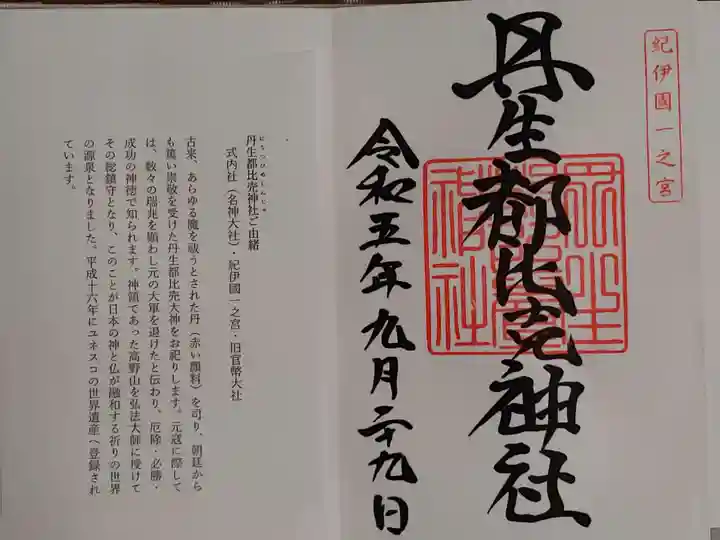 紀伊國一之宮
丹生都比売神社
令和五年九月二十九日
丹生都比売神社ご由緒
にうつひめじんじゃ
式内社（名神大社）・紀伊國一之宮・旧官幣大社
古来、あらゆる魔を祓うとされた丹（赤い顔料）を司り、朝廷から
も篤い崇敬を受けた丹生都比売大神をお祀りします。元寇に際して
は、数々の瑞兆を顕わし元の大軍を退けたと伝わり、厄除・必勝・
成功の神徳で知られます。神領であった高野山を弘法大師に授けて
その総鎮守となり、このことが日本の神と仏が融和する祈りの世界
の源泉となりました。平成十六年にユネスコの世界遺産へ登録され
ています。